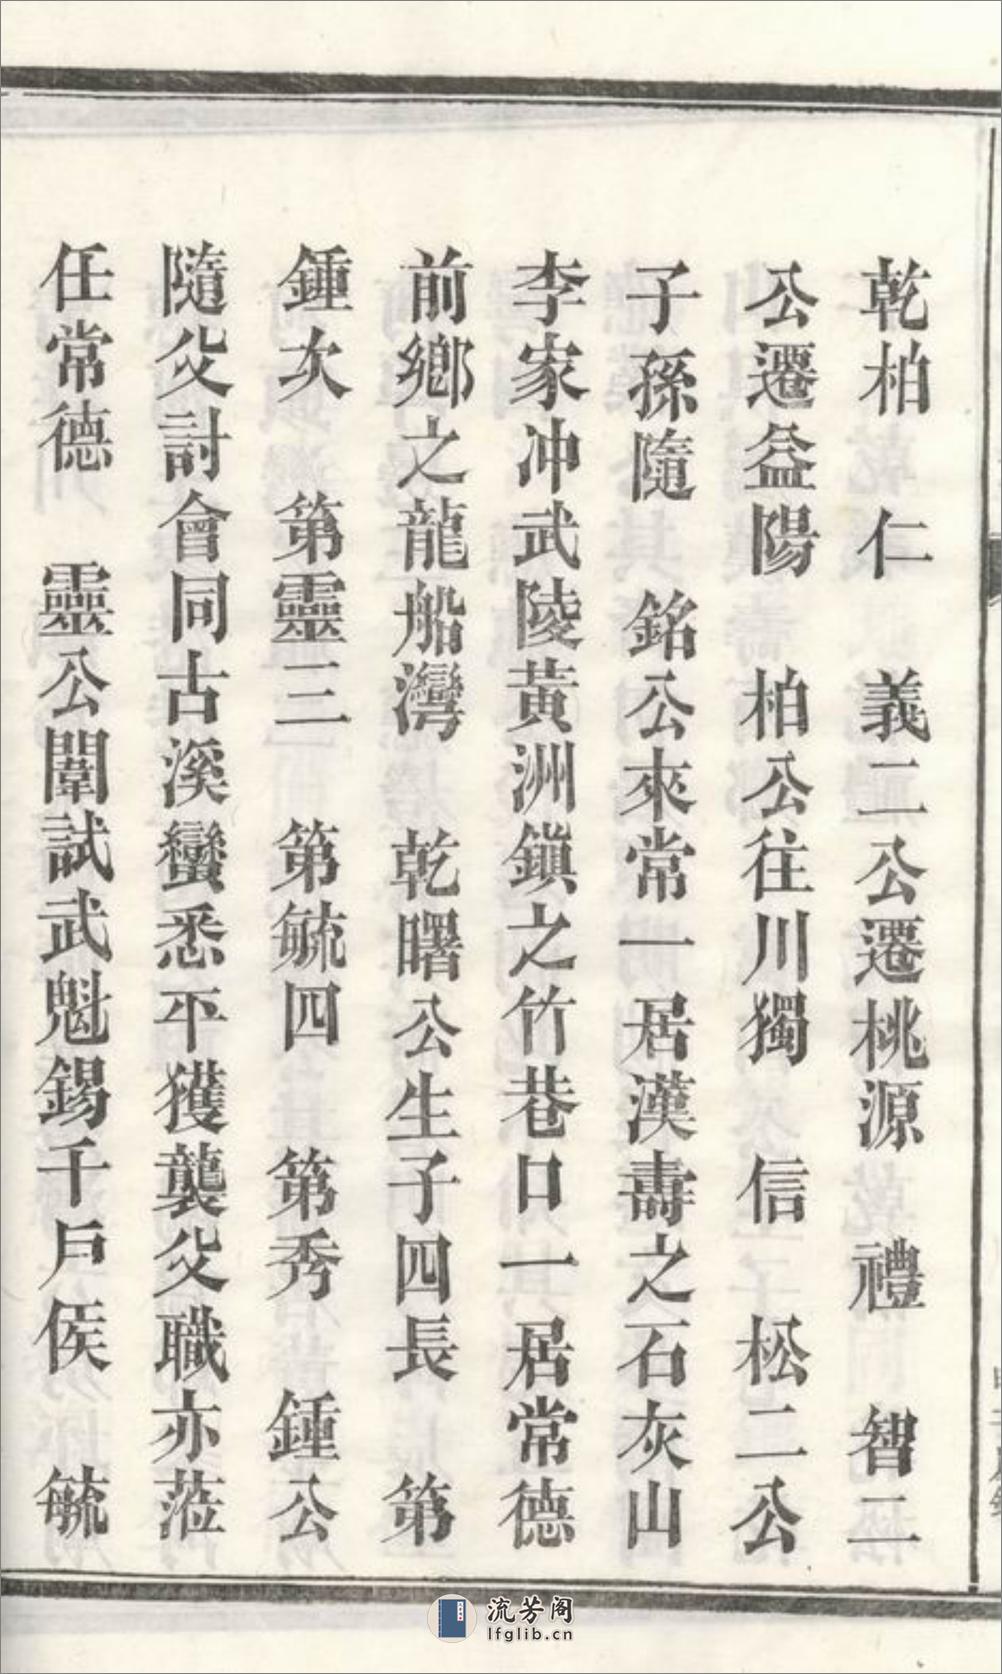 乾柏　仁　義二公遷桃源　禮　智二
公遷益陽　柏公往川獨　信　松二公
子孫隨　銘公來常一居漢壽之石灰山
李家冲武陵黃洲鎭之竹巷口一居常德
前鄉之龍船灣　乾曙公生子四長　第
鍾次　第靈三　第毓四　第秀　鍾公
隨父討會同古溪蠻悉平獲襲父職亦蒞
任常德　靈公闈試武魁錫千戶侯　毓
流芳阁
lfglib.cn